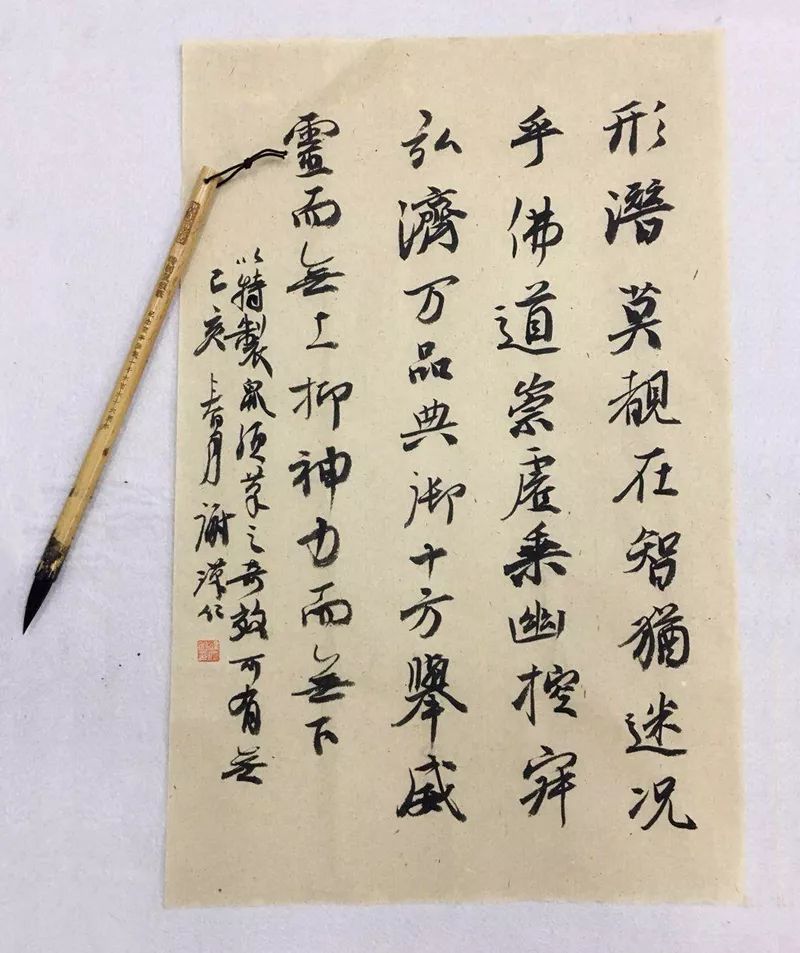 形潛莫覩在智猶迷况
乎佛道崇虛乘幽控寂
弘濟万品典御十方舉威
靈而無上抑神力而無下
以特製鼠须筆之奇效可有無
己亥春月謝漢仁